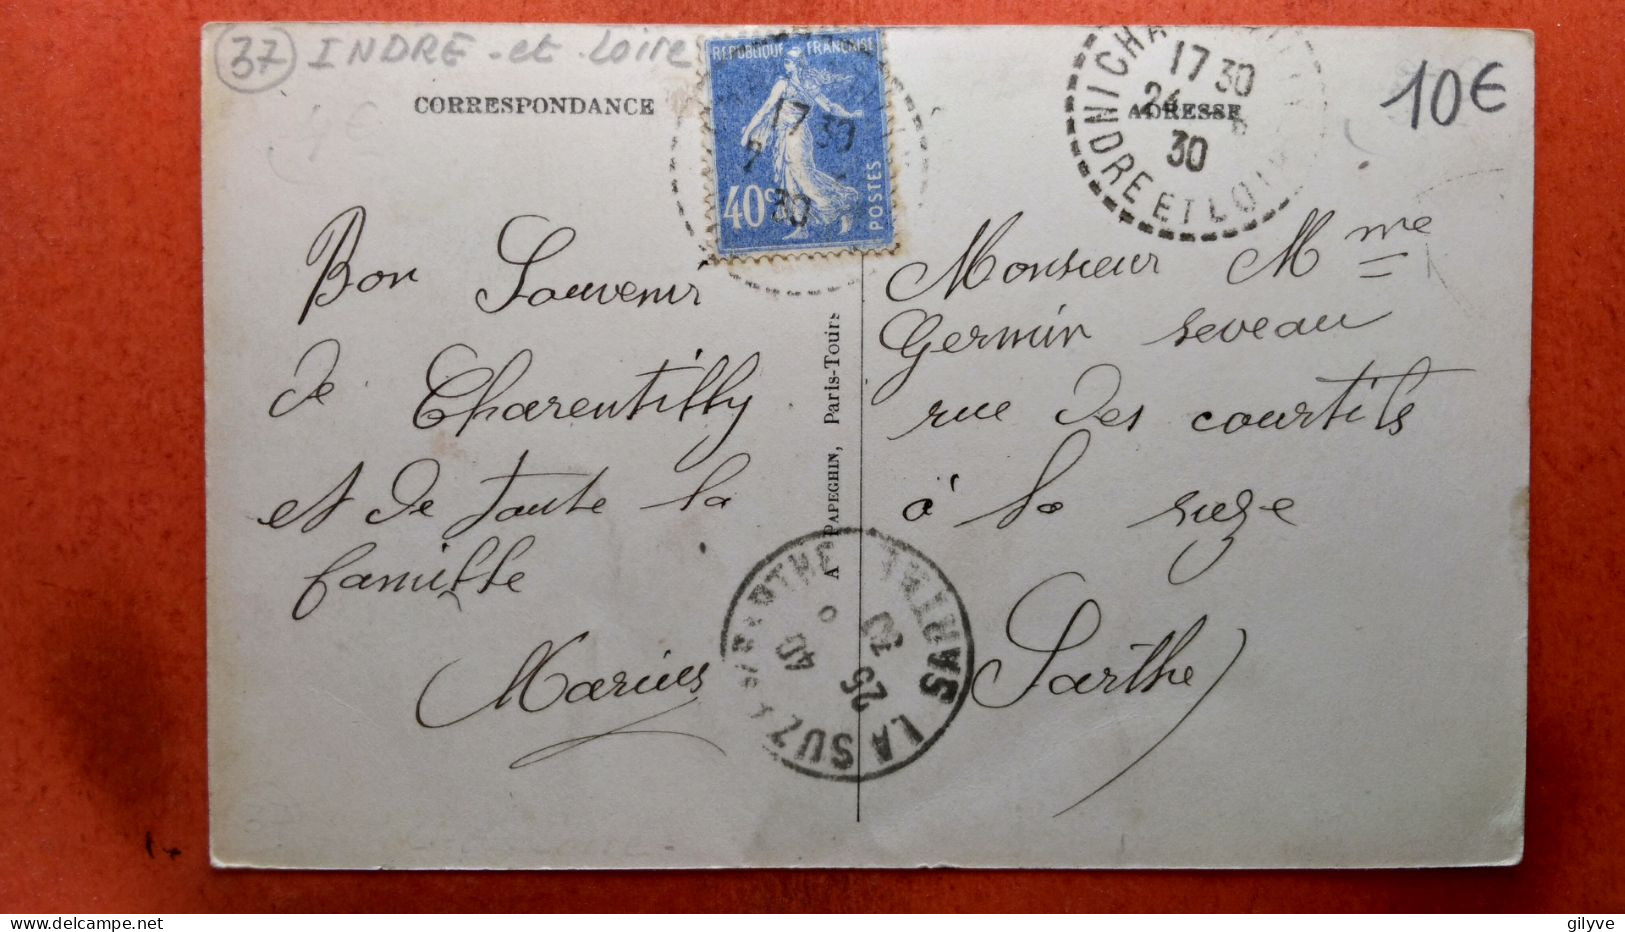 37 INDRE et Loire
CORRESPONDANCE
REPUBLIQUE FRANÇAISE
40c POSTES
17 30
30
INDRE ET LOIRE
17 30
24 6
30
ADRESSE
10€
Bon Souvenir
de Charentilly
et de toute la
famille
Marius
A PAPEGHIN, Paris-Tours
Monsieur Mme
Germin seveau
rue des courtils
à la suze
Sarthe
LA SUZE SARTHE
25
gilyve